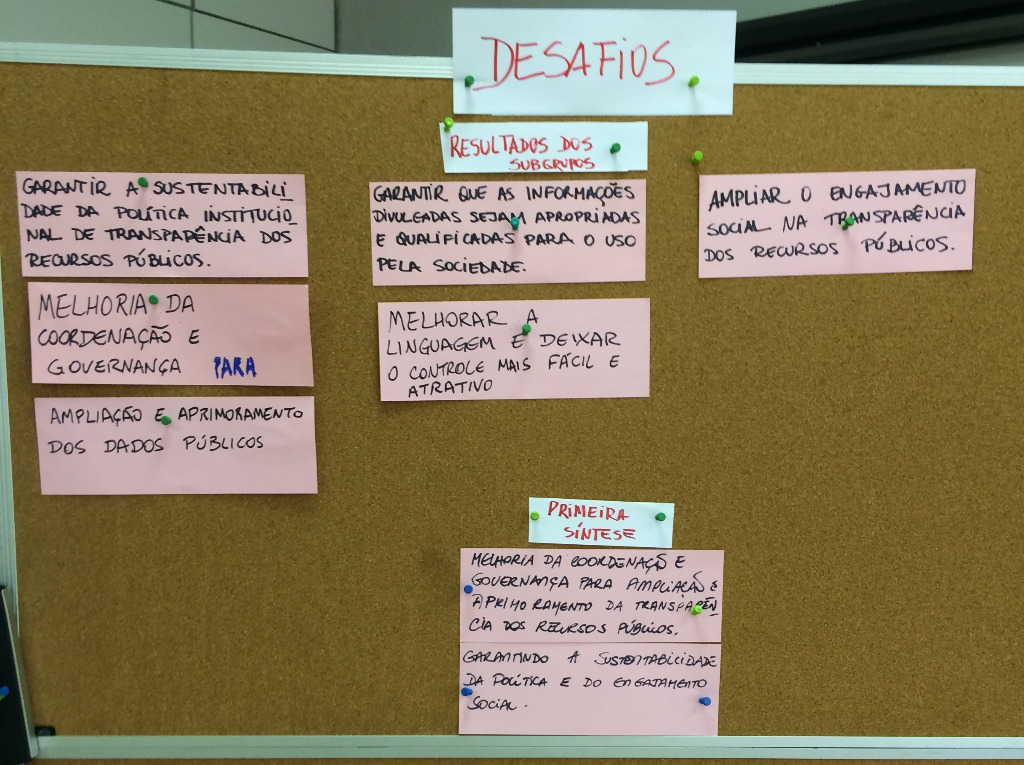 DESAFIOS
RESULTADOS DOS
SUBGRUPOS
GARANTIR A SUSTENTABILI
DADE DA POLÍTICA INSTITUCIO
NAL DE TRANSPARÊNCIA DOS
RECURSOS PÚBLICOS.
MELHORIA DA
COORDENAÇÃO E
GOVERNANÇA PARA
AMPLIAÇÃO E APRIMORAMENTO
DOS DADOS PÚBLICOS
GARANTIR QUE AS INFORMAÇÕES
DIVULGADAS SEJAM APROPRIADAS
E QUALIFICADAS PARA O USO
PELA SOCIEDADE.
MELHORAR A
LINGUAGEM E DEIXAR
O CONTROLE MAIS FÁCIL E
ATRATIVO
AMPLIAR O ENGAJAMENTO
SOCIAL NA TRANSPARÊNCIA
DOS RECURSOS PÚBLICOS.
PRIMEIRA
SÍNTESE
MELHORIA DA COORDENAÇÃO E
GOVERNANÇA PARA AMPLIAÇÃO E
APRIMORAMENTO DA TRANSPARÊN
CIA DOS RECURSOS PÚBLICOS,
GARANTINDO A SUSTENTABILIDADE
DA POLÍTICA E DO ENGAJAMENTO
SOCIAL.